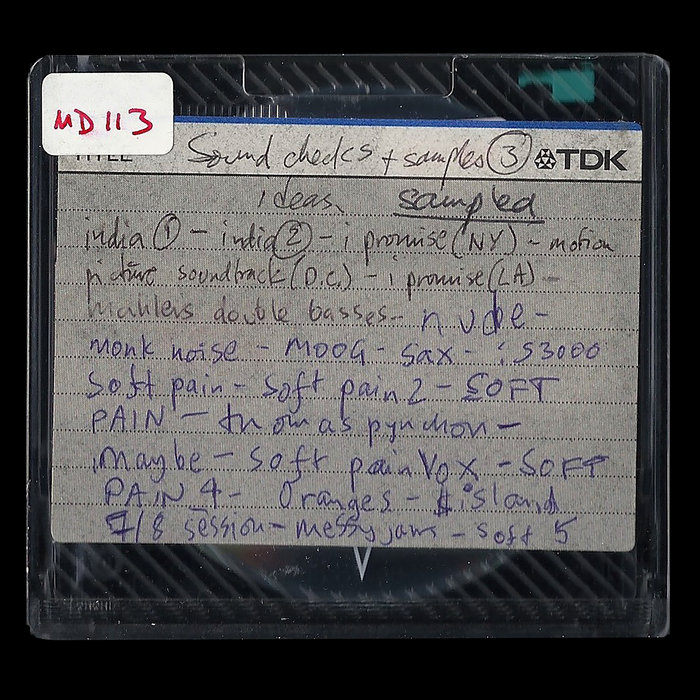 MD 113
Sound checks + samples ③ TDK
ideas sampled
india ① - india ② - i promise (NY) - motion
picture soundtrack (D.C) - i promise (LA) -
mahlers double basses - nude -
monk noise - MOOG - sax - : S3000
soft pain - soft pain 2 - SOFT
PAIN - thomas pynchon -
maybe - soft pain vox - SOFT
PAIN 4 - Oranges - island
7/8 session - messy jams - soft 5